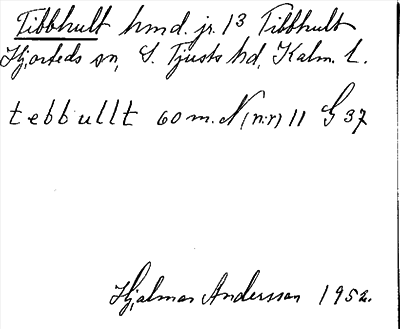 Tibbhult hmd. jr. 13 Tibbhult
Hjorteds sn, S. Tjusts hd, Kalm. l.
tebbullt 60 m. N (nr) 11 G 37
Hjalmar Andersson 1952.